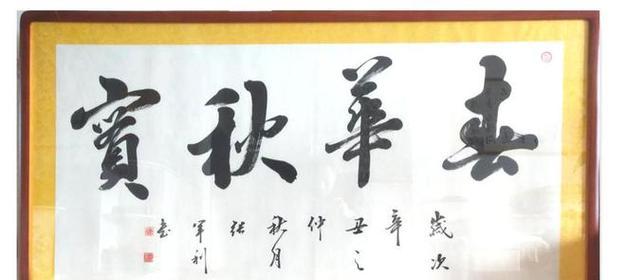 春華秋實
歲次
辛
丑之
仲
秋月
張
軍利
書